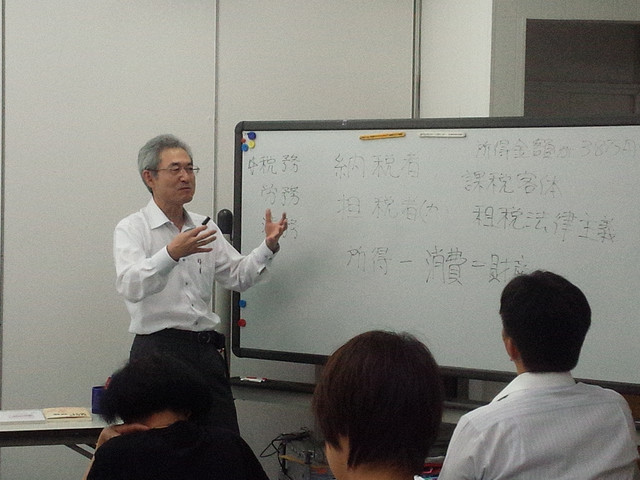 税務
労務
納税者
担税者
所得 － 消費 ＝ 財産
所得金額が 38万円
課税客体
租税法律主義